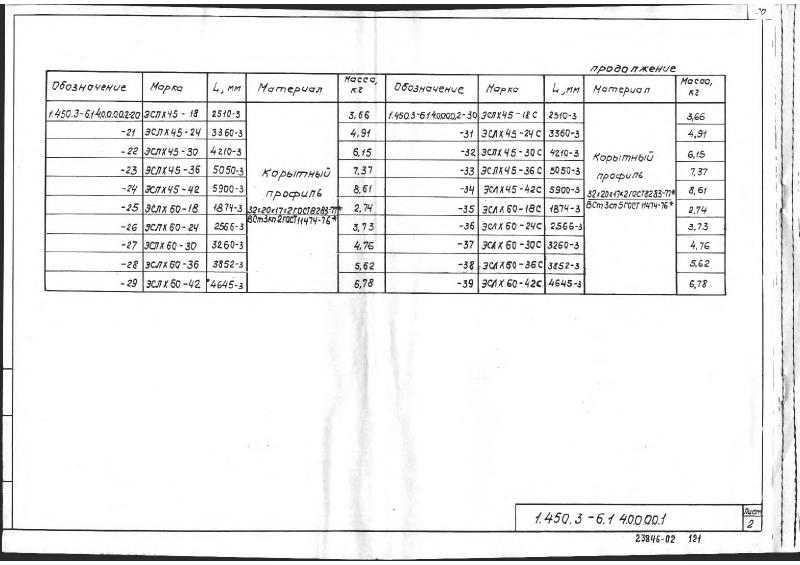 продолжение
Обозначение Марка L, мм Материал Масса, кг Обозначение Марка L, мм Материал Масса, кг
1.450.3-6.1 4.0.0.00.2-20 ЭСЛХ45-18 2510-3 Корытный профиль 32×20×17×2 ГОСТ 8283-77* ВСт3кп2 ГОСТ 11474-76* 3,66 1.450.3-6.1 4.0.0.00.2-30 ЭСЛХ45-18С 2510-3 Корытный профиль 32×20×17×2 ГОСТ 8283-77* ВСт3сп5 ГОСТ 11474-76* 3,66
-21 ЭСЛХ45-24 3360-3 4,91 -31 ЭСЛХ45-24С 3360-3 4,91
-22 ЭСЛХ45-30 4210-3 6,15 -32 ЭСЛХ45-30С 4210-3 6,15
-23 ЭСЛХ45-36 5050-3 7,37 -33 ЭСЛХ45-36С 5050-3 7,37
-24 ЭСЛХ45-42 5900-3 8,61 -34 ЭСЛХ45-42С 5900-3 8,61
-25 ЭСЛХ60-18 1874-3 2,74 -35 ЭСЛХ60-18С 1874-3 2,74
-26 ЭСЛХ60-24 2566-3 3,73 -36 ЭСЛХ60-24С 2566-3 3,73
-27 ЭСЛХ60-30 3260-3 4,76 -37 ЭСЛХ60-30С 3260-3 4,76
-28 ЭСЛХ60-36 3852-3 5,62 -38 ЭСЛХ60-36С 3852-3 5,62
-29 ЭСЛХ60-42 4645-3 6,78 -39 ЭСЛХ60-42С 4645-3 6,78
1.450.3-6.1 4.0.0.00.1
Лист
2
23846-02 121